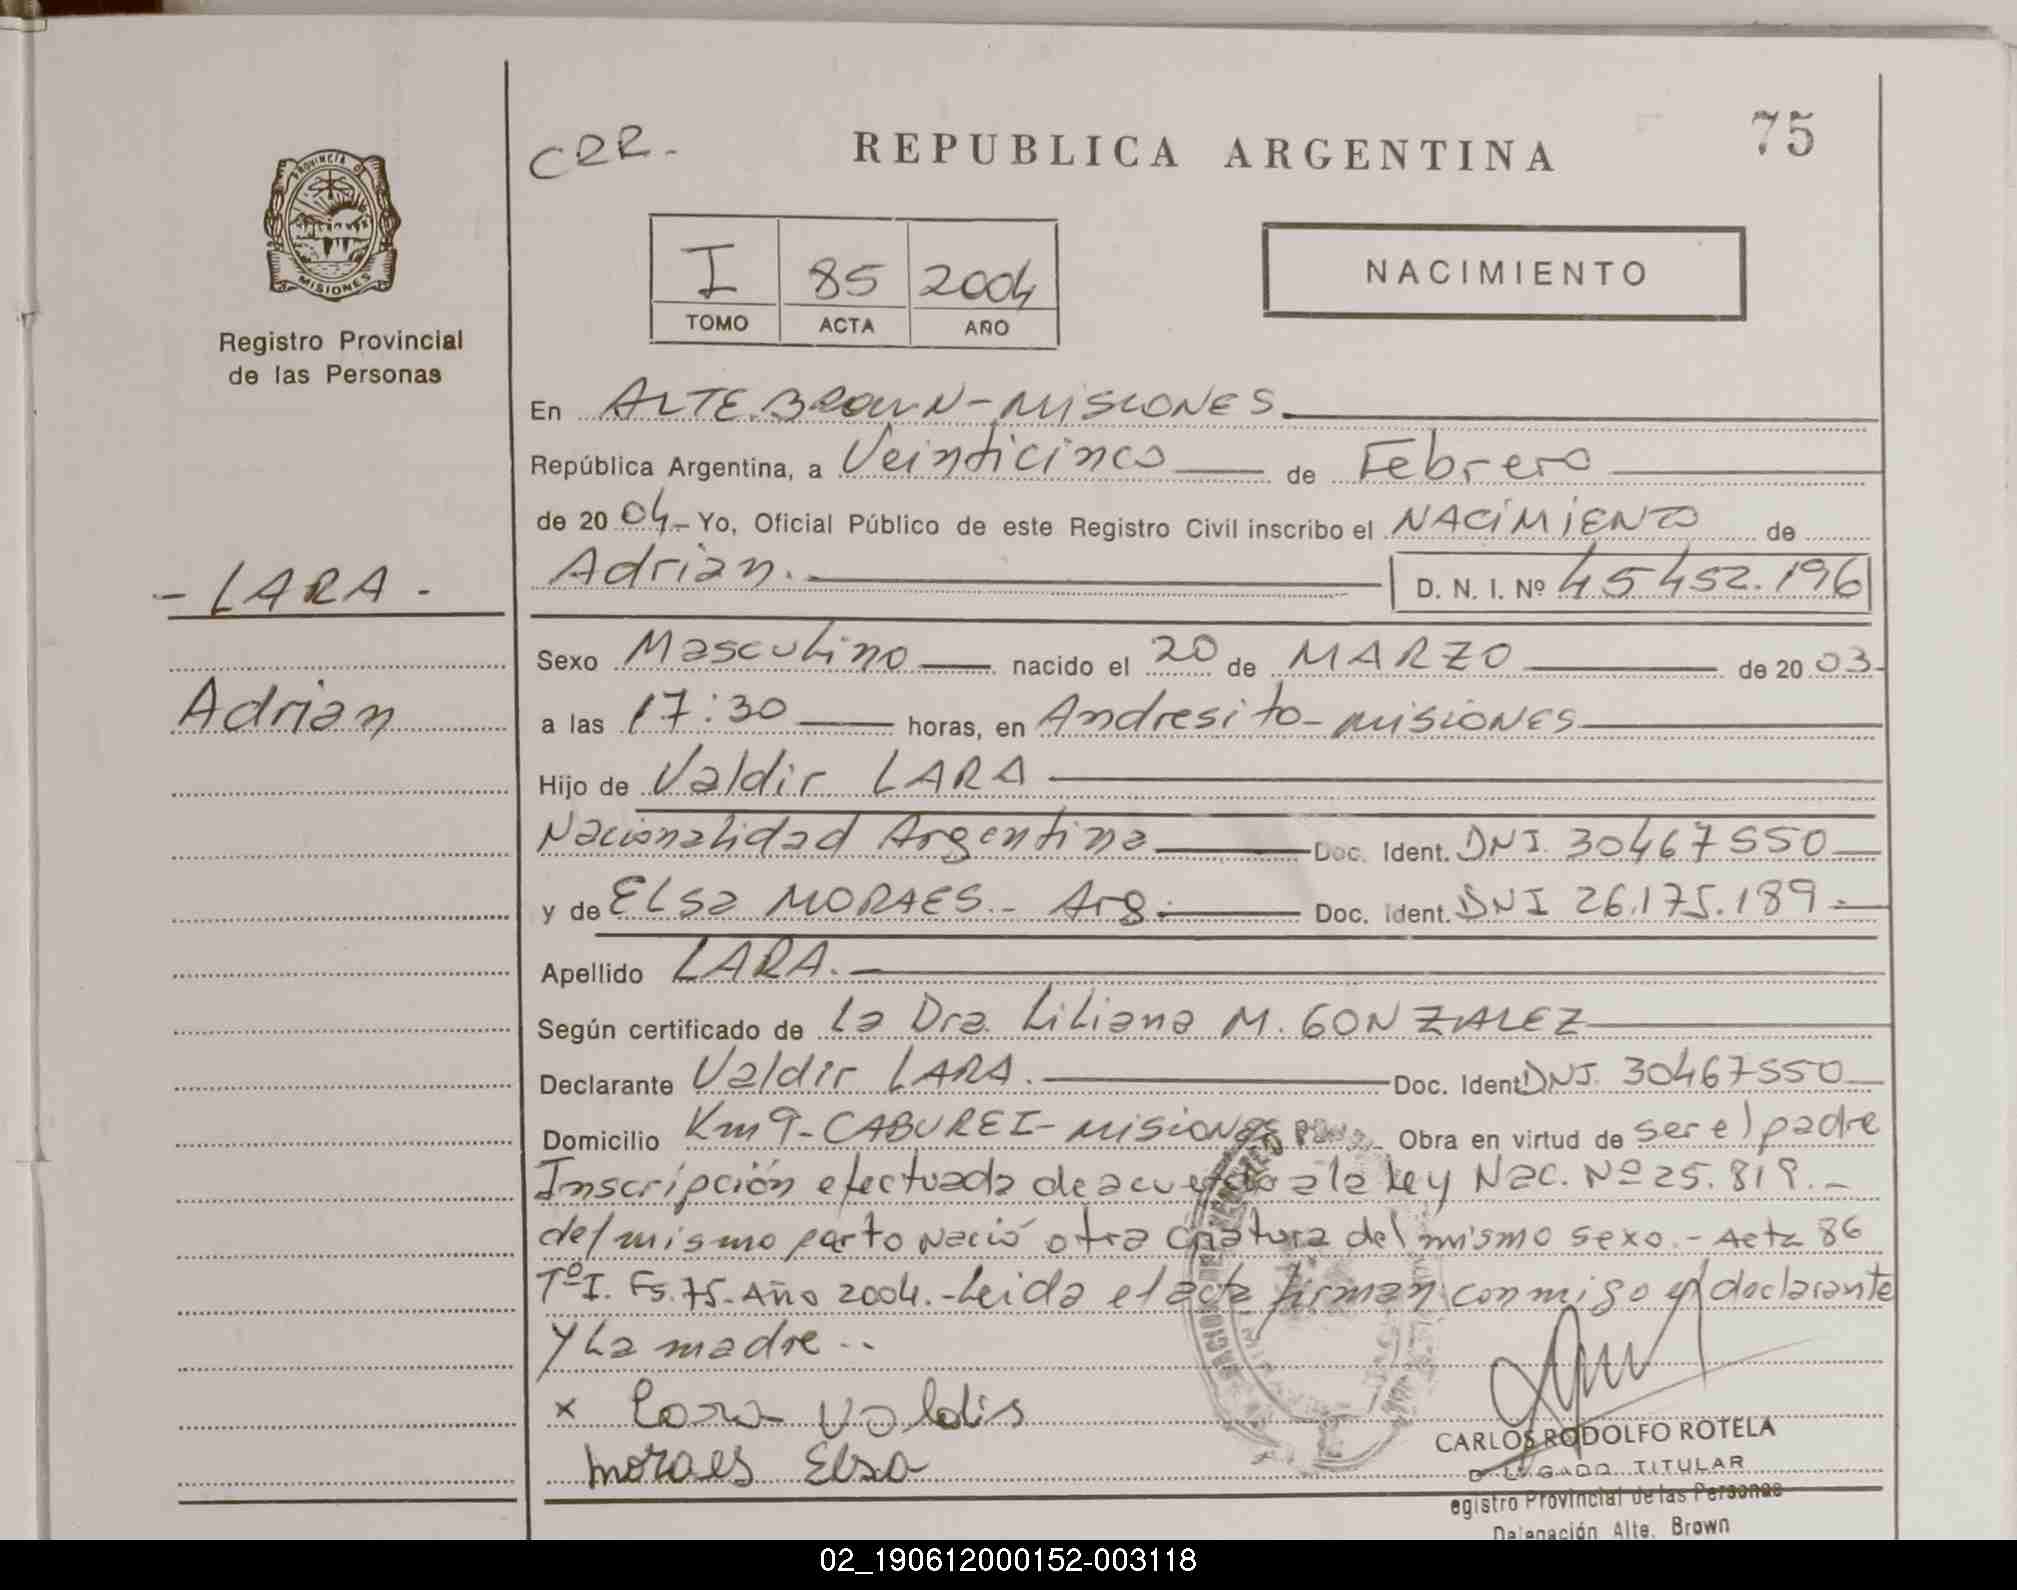 CRR.-
REPUBLICA ARGENTINA
75
PROVINCIA DE
MISIONES
Registro Provincial
de las Personas
I 85 2004
TOMO ACTA AÑO
NACIMIENTO
En ALTE. BROWN-MISIONES
República Argentina, a Veinticinco de Febrero
de 20 04.- Yo, Oficial Público de este Registro Civil inscribo el NACIMIENTO de
Adrian. D. N. I. Nº 45452.196
- LARA -
Adrian
Sexo Masculino nacido el 20 de MARZO de 20 03.-
a las 17:30 horas, en Andresito-MISIONES
Hijo de Valdir LARA
Nacionalidad Argentina Doc. Ident. DNI. 30467550
y de ELSA MORAES.- Arg. Doc. Ident. DNI 26.175.189.-
Apellido LARA.
Según certificado de La Dra. Liliana M. GONZALEZ
Declarante Valdir LARA. Doc. Ident DNI. 30467550
Domicilio Km 9-CABUREI-MISIONES Obra en virtud de ser el padre
Inscripción efectuada de acuerdo a la Ley Nac. Nº 25.819.-
del mismo parto Nació otra criatura del mismo sexo.- Acta 86
Tº I. Fs. 75- Año 2004.-Leida el acta firman conmigo el declarante
y La madre..
x Lara Valdir
Moraes Elsa
CARLOS RODOLFO ROTELA
DELEGADO TITULAR
egistro Provincial de las Personas
Delegación Alte. Brown
02_190612000152-003118